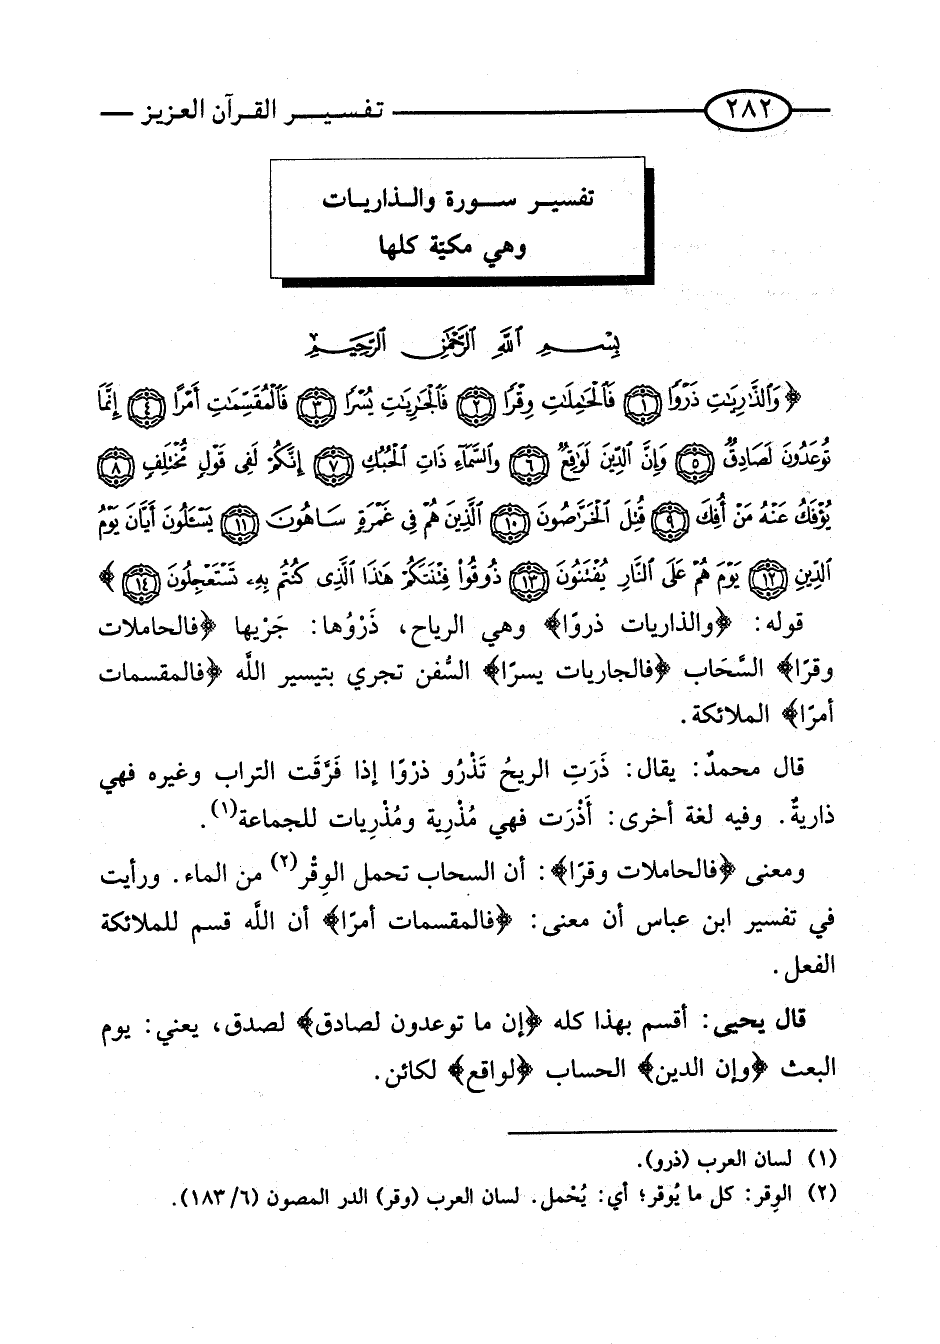 ٢٨٢ تفسير القرآن العزيز
تفسير سورة والذاريات
وهي مكيّة كلها
بِسْمِ ٱللَّهِ ٱلرَّحْمَٰنِ ٱلرَّحِيمِ
﴿وَٱلذَّٰرِيَٰتِ ذَرْوًا ١ فَٱلْحَٰمِلَٰتِ وِقْرًا ٢ فَٱلْجَٰرِيَٰتِ يُسْرًا ٣ فَٱلْمُقَسِّمَٰتِ أَمْرًا ٤ إِنَّمَا
تُوعَدُونَ لَصَادِقٌ ٥ وَإِنَّ ٱلدِّينَ لَوَٰقِعٌ ٦ وَٱلسَّمَآءِ ذَاتِ ٱلْحُبُكِ ٧ إِنَّكُمْ لَفِى قَوْلٍ مُّخْتَلِفٍ ٨
يُؤْفَكُ عَنْهُ مَنْ أُفِكَ ٩ قُتِلَ ٱلْخَرَّٰصُونَ ١٠ ٱلَّذِينَ هُمْ فِى غَمْرَةٍ سَاهُونَ ١١ يَسْـَٔلُونَ أَيَّانَ يَوْمُ
ٱلدِّينِ ١٢ يَوْمَ هُمْ عَلَى ٱلنَّارِ يُفْتَنُونَ ١٣ ذُوقُوا۟ فِتْنَتَكُمْ هَٰذَا ٱلَّذِى كُنتُم بِهِۦ تَسْتَعْجِلُونَ ١٤﴾
قوله: ﴿والذاريات ذروًا﴾ وهي الرياح، ذَرْوُها: جَرْيها ﴿فالحاملات
وقرًا﴾ السَّحَاب ﴿فالجاريات يسرًا﴾ السُّفن تجري بتيسير اللَّه ﴿فالمقسمات
أمرًا﴾ الملائكة.
قال محمدٌ: يقال: ذَرَتِ الريحُ تَذْرُو ذرْوًا إذا فَرَّقَت التراب وغيره فهي
ذاريةٌ. وفيه لغة أخرى: أَذْرَت فهي مُذْرِية ومُذْرِيات للجماعة(١).
ومعنى ﴿فالحاملات وقرًا﴾: أن السحاب تحمل الوِقْر(٢) من الماء. ورأيت
في تفسير ابن عباس أن معنى: ﴿فالمقسمات أمرًا﴾ أن اللَّه قسم للملائكة
الفعل.
قال يحيى: أقسم بهذا كله ﴿إن ما توعدون لصادق﴾ لصدق، يعني: يوم
البعث ﴿وإن الدين﴾ الحساب ﴿لواقع﴾ لكائن.
(١) لسان العرب (ذرو).
(٢) الوِقر: كل ما يُوقر؛ أي: يُحْمل. لسان العرب (وقر) الدر المصون (٦/١٨٣).